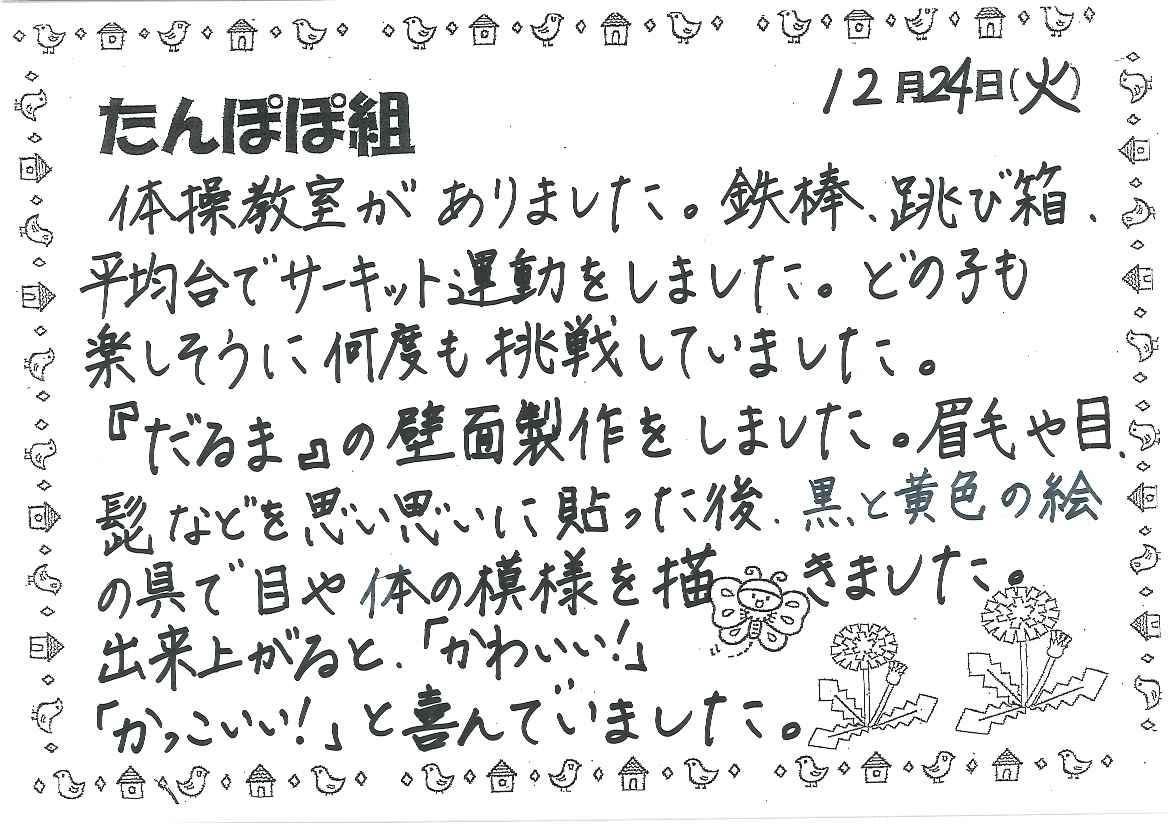 12月24日(火)
たんぽぽ組
体操教室がありました。鉄棒、跳び箱、
平均台でサーキット運動をしました。どの子も
楽しそうに何度も挑戦していました。
『だるま』の壁面製作をしました。眉毛や目、
髭などを思い思いに貼った後、黒と黄色の絵
の具で目や体の模様を描きました。
出来上がると、「かわいい!」
「かっこいい!」と喜んでいました。